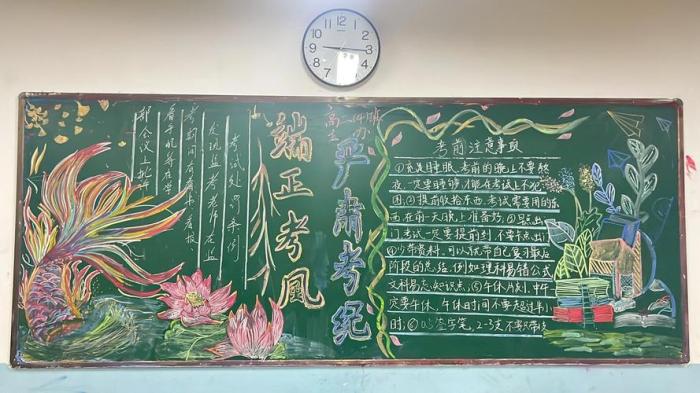 考试处分举例
发现监考老师在监
考期间有看书、看报、
看手机等在学
部会议上批评
端正考風
严肃考纪
高一(14)班
主办
考前注意事项
①充足睡眠、考前的晚上不要熬
夜,一定要睡够,才能在考试上不犯
困。②提前收拾东西,考试需要用的东
西,在前一天晚上准备好。③早点出
门,考试一定要提前到,不要卡点出门
④少带资料,可以就带自己复习最后
阶段的总结,例如理科易错公式
文科易忘知识点。⑤午休片刻,中午一
定要午休,午休时间不要超过半小
时;⑥0.5签字笔,2-3支,不要只带
12
1
2
3
4
5
6
7
8
9
10
11